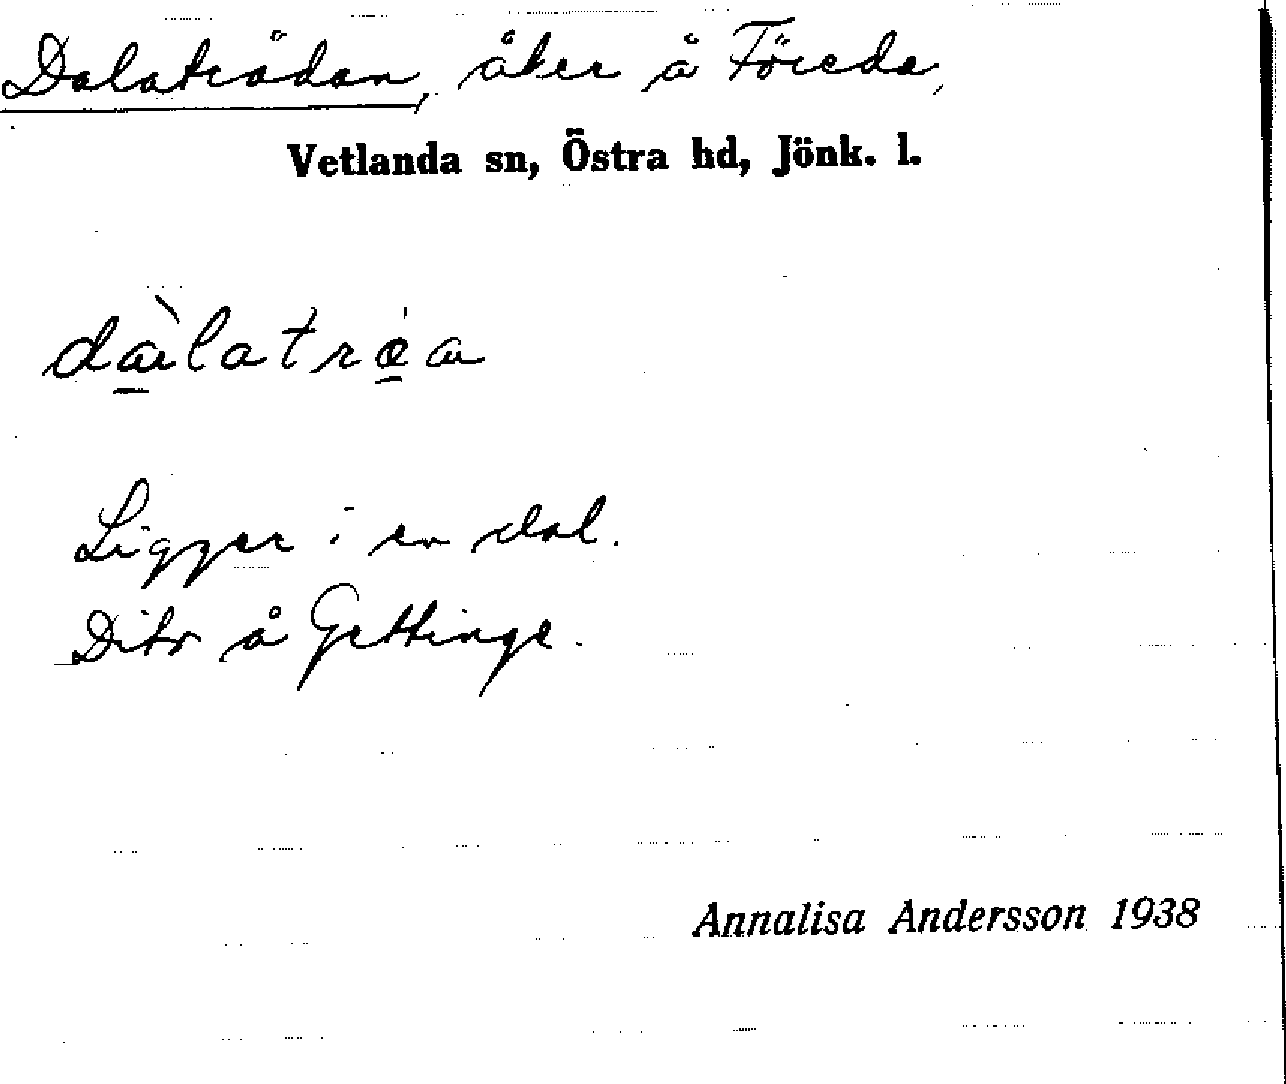 Dalaträdan, åker å Föreda,
Vetlanda sn, Östra hd, Jönk. l.
dàlatrǿa
Ligger i en dal.
Dito å Gettinge.
Annalisa Andersson 1938